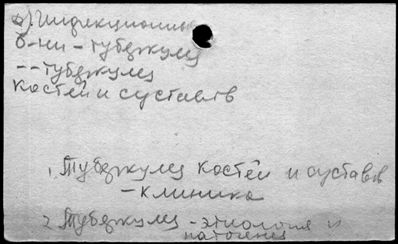 а) Инфекционные
б-ни - туберкулез
-- туберкулез
костей и суставов
1. Туберкулез костей и суставов
- клиника
2. Туберкулез - этиология и
патогенез